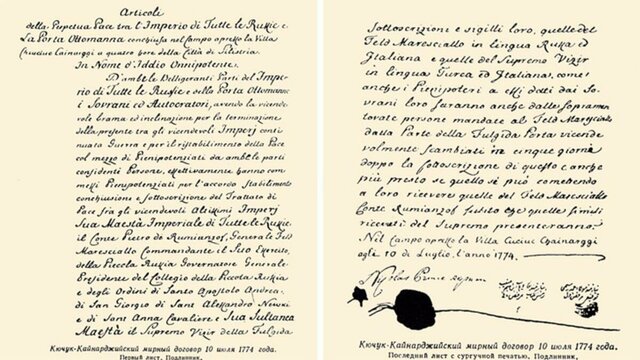 Articole
della Perpetua Pace tra l'Imperio di Tutte le Russie e
La Porta Ottomanna conchiusa nel campo apresso la Villa
Chiuciuc Cainarggi a quatro hore della Città di Silistria.
In Nome d'Iddio Onnipotente.
D'ambe le Belligeranti Parti del Impe-
rio di Tutte le Russie e della Porta Ottomana:
i Sovrani ed Autocratori, avendo la vicende-
role brama ed inclinazione per la terminazione
della presente tra gli vicendevoli Imperj conti
nuata Guerra e per il ristabilimento della Pace
col mezzo di Plenipotenziati da ambe le parti
confidenti Persone, effettivamente hanno com-
messi Plenipotenziati per l'accordo Stabilimento
conclusione e sottoscrizione del Trattato di
Pace fra gli vicendevoli Altissimi Imperj
Sua Maestà Imperiale di Tutte le Russie:
il Conte Pietro de Rumianzof, Generale Feld
Maresciallo Commandante il Suo Esercito,
della Piccola Russia Governatore Generale
Presidente del Collegio della Piccola Russia
e degli Ordini di Santo Apostolo Andrea:
di San Giorgio di Sant Alexandro Newski
e di Sant Anna Cavaliere e Sua Sultanea
Maestà il Supremo Vizir della Fulgida
Кючук-Кайнарджийский мирный договор 10 июля 1774 года.
Первый лист. Подлинник.
Sottoscrizioni e sigilli loro, quelle del
Feld Maresciallo in lingua Russa ed
Italiana e quelle del Supremo Vizir
in lingua Turca ed Italiana, come
anche i Plenipoteri a essi dati dai So-
vrani loro saranno anche dalle sopramen
tovate persone mandate al Feld Maresciallo
dalla Parte della Fulgida Porta vicende
volmente scambiati in cinque giorni
doppo la sottoscrizione di questo e anche
più presto se quello si può comettendo
a loro ricevere quelle del Feld Maresciallo
Conte Rumianzof subito che quelle simili
ricevuti del Supremo presenteranno.
Nel Campo apresso la Villa Cuciuc Chainarggi
agli 10 di Luglio, l'anno 1774.
Кючук-Кайнарджийский мирный договор 10 июля 1774 года.
Последний лист с сургучной печатью. Подлинник.